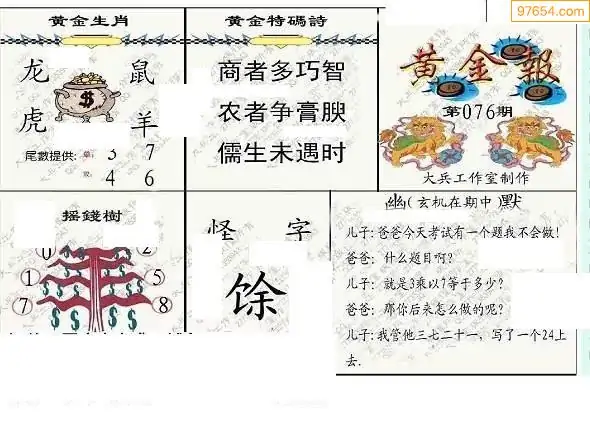 97654.com
黄金生肖
龙 鼠
虎 羊
尾數提供: 單: 3 7
双: 4 6
黄金特碼詩
商者多巧智
农者争膏腴
儒生未遇时
黄金報
第076期
大兵工作室制作
摇錢樹
0 2
1 5
7 8
怪 字
馀
幽(玄机在期中)默
儿子:爸爸今天考试有一个题我不会做!
爸爸: 什么题目啊?
儿子: 就是3乘以7等于多少?
爸爸: 那你后来怎么做的呢?
儿子:我管他三七二十一, 写了一个24上
去.